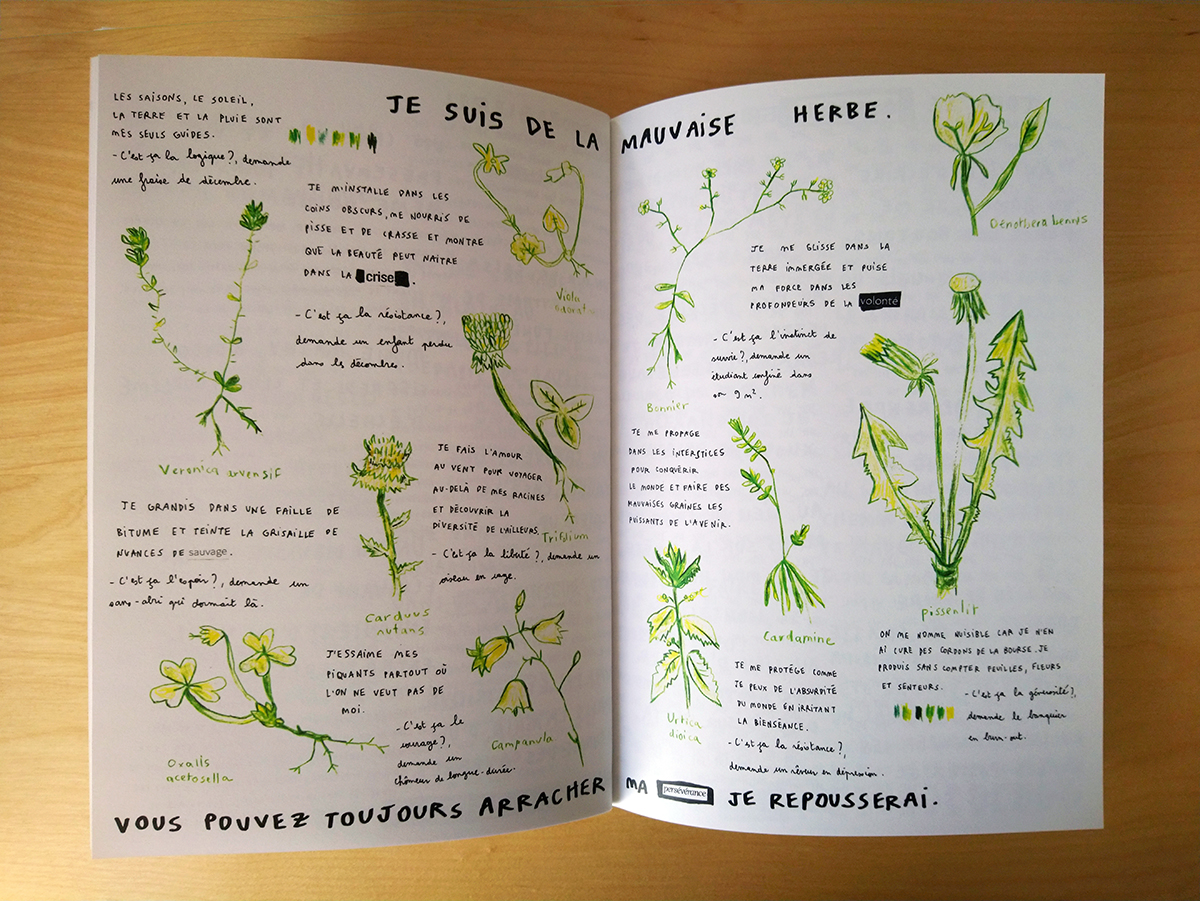 JE SUIS DE LA MAUVAISE HERBE.
LES SAISONS, LE SOLEIL,
LA TERRE ET LA PLUIE SONT
MES SEULS GUIDES.
- C'est ça la logique?, demande
une fraise de décembre.
JE M'INSTALLE DANS LES
COINS OBSCURS, ME NOURRIS DE
PISSE ET DE CRASSE ET MONTRE
QUE LA BEAUTÉ PEUT NAÎTRE
DANS LA crise.
- C'est ça la résistance?,
demande un enfant perdu
dans les décombres.
Viola
Veronica arvensis
JE GRANDIS DANS UNE FAILLE DE
BITUME ET TEINTE LA GRISAILLE DE
NUANCES DE sauvage.
- C'est ça l'espoir?, demande un
sans-abri qui dormait là.
JE FAIS L'AMOUR
AU VENT POUR VOYAGER
AU-DELÀ DE MES RACINES
ET DÉCOUVRIR LA
DIVERSITÉ DE L'AILLEURS.
- C'est ça la liberté?, demande un
oiseau en cage.
Trifolium
Carduus
nutans
J'ESSAIME MES
PIQUANTS PARTOUT OÙ
L'ON NE VEUT PAS DE
MOI.
- C'est ça le
courage?,
demande un
chômeur de longue-durée.
Oxalis
acetosella
Campanula
Oenothera biennis
JE ME GLISSE DANS LA
TERRE IMMERGÉE ET PUISE
MA FORCE DANS LES
PROFONDEURS DE LA volonté
- C'est ça l'instinct de
survie?, demande un
étudiant confiné dans
son 9 m².
Bonnier
JE ME PROPAGE
DANS LES INTERSTICES
POUR CONQUÉRIR
LE MONDE ET FAIRE DES
MAUVAISES GRAINES LES
PUISSANTS DE L'AVENIR.
Cardamine
pissenlit
Urtica
dioica
JE ME PROTÈGE COMME
JE PEUX DE L'ABSURDITÉ
DU MONDE EN IRRITANT
LA BIENSÉANCE.
- C'est ça la résistance?,
demande un rêveur en dépression.
ON ME NOMME NUISIBLE CAR JE N'EN
AI CURE DES CORDONS DE LA BOURSE. JE
PRODUIS SANS COMPTER FEUILLES, FLEURS
ET SENTEURS.
- C'est ça la générosité?,
demande le banquier
en burn-out.
VOUS POUVEZ TOUJOURS ARRACHER MA persévérance JE REPOUSSERAI.